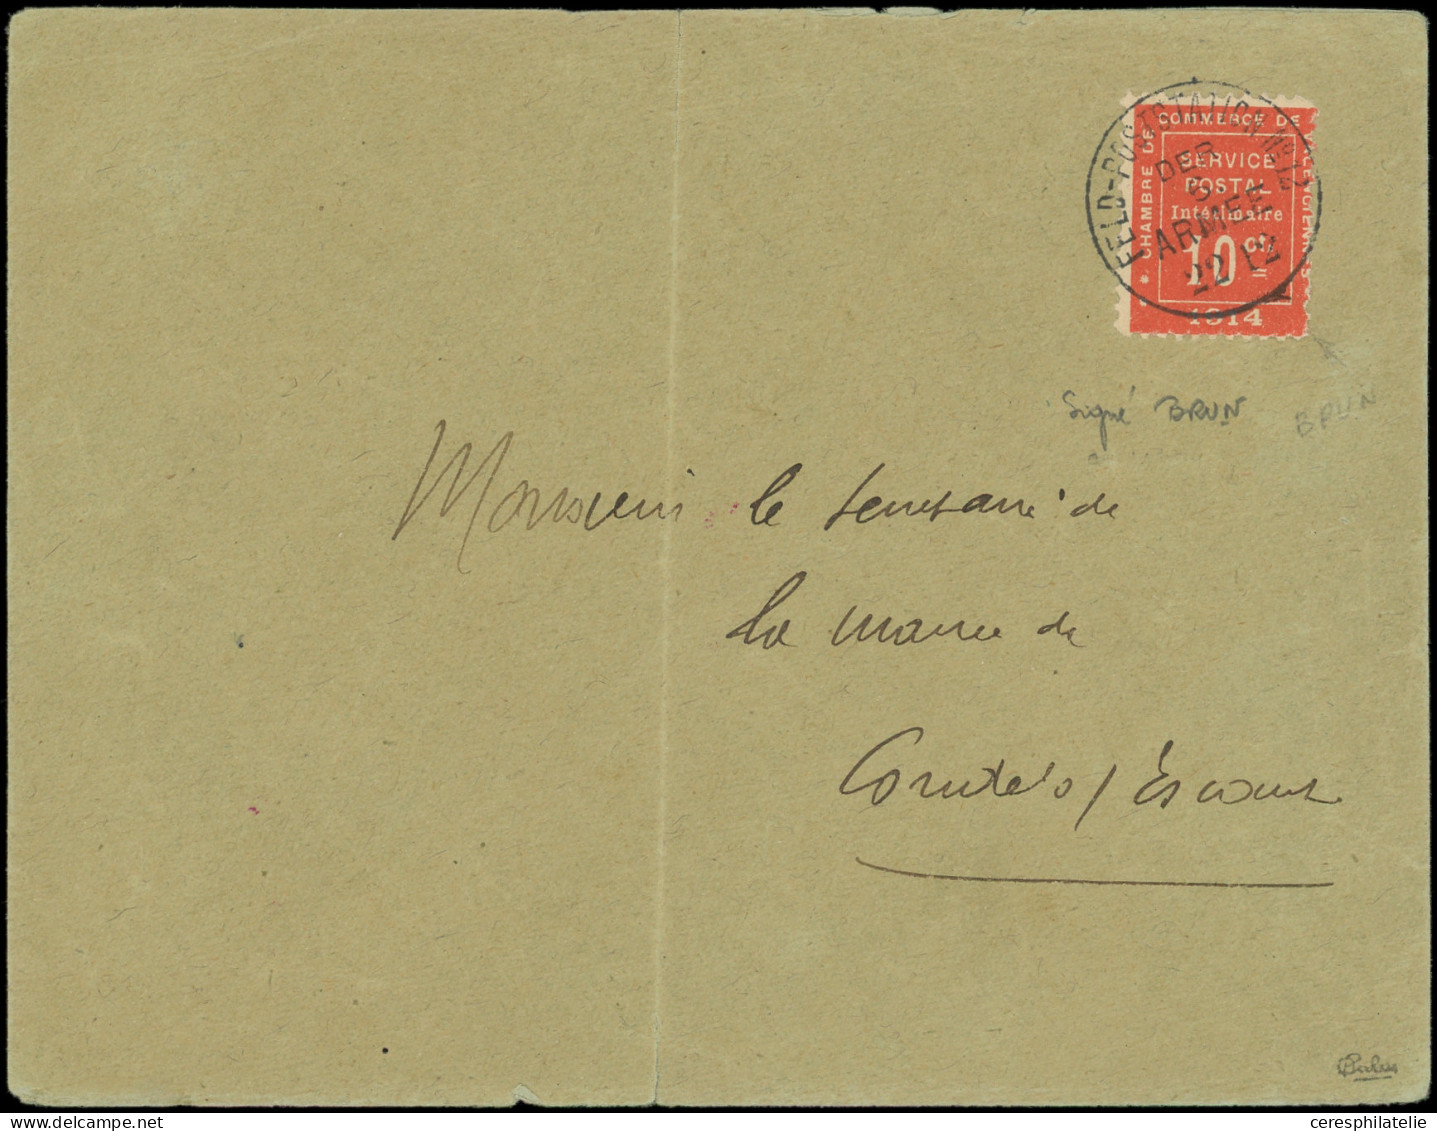 FELD-POSTSTATION Nº 12
DER
6
ARMEE
22 12
CHAMBRE DE COMMERCE DE VALENCIENNES
SERVICE
POSTAL
Intérimaire
10 cn
1914
Signé BRUN
BRUN
Monsieur le secrétaire de
la mairie de
Condé s/Escaut
ceresphilatelie